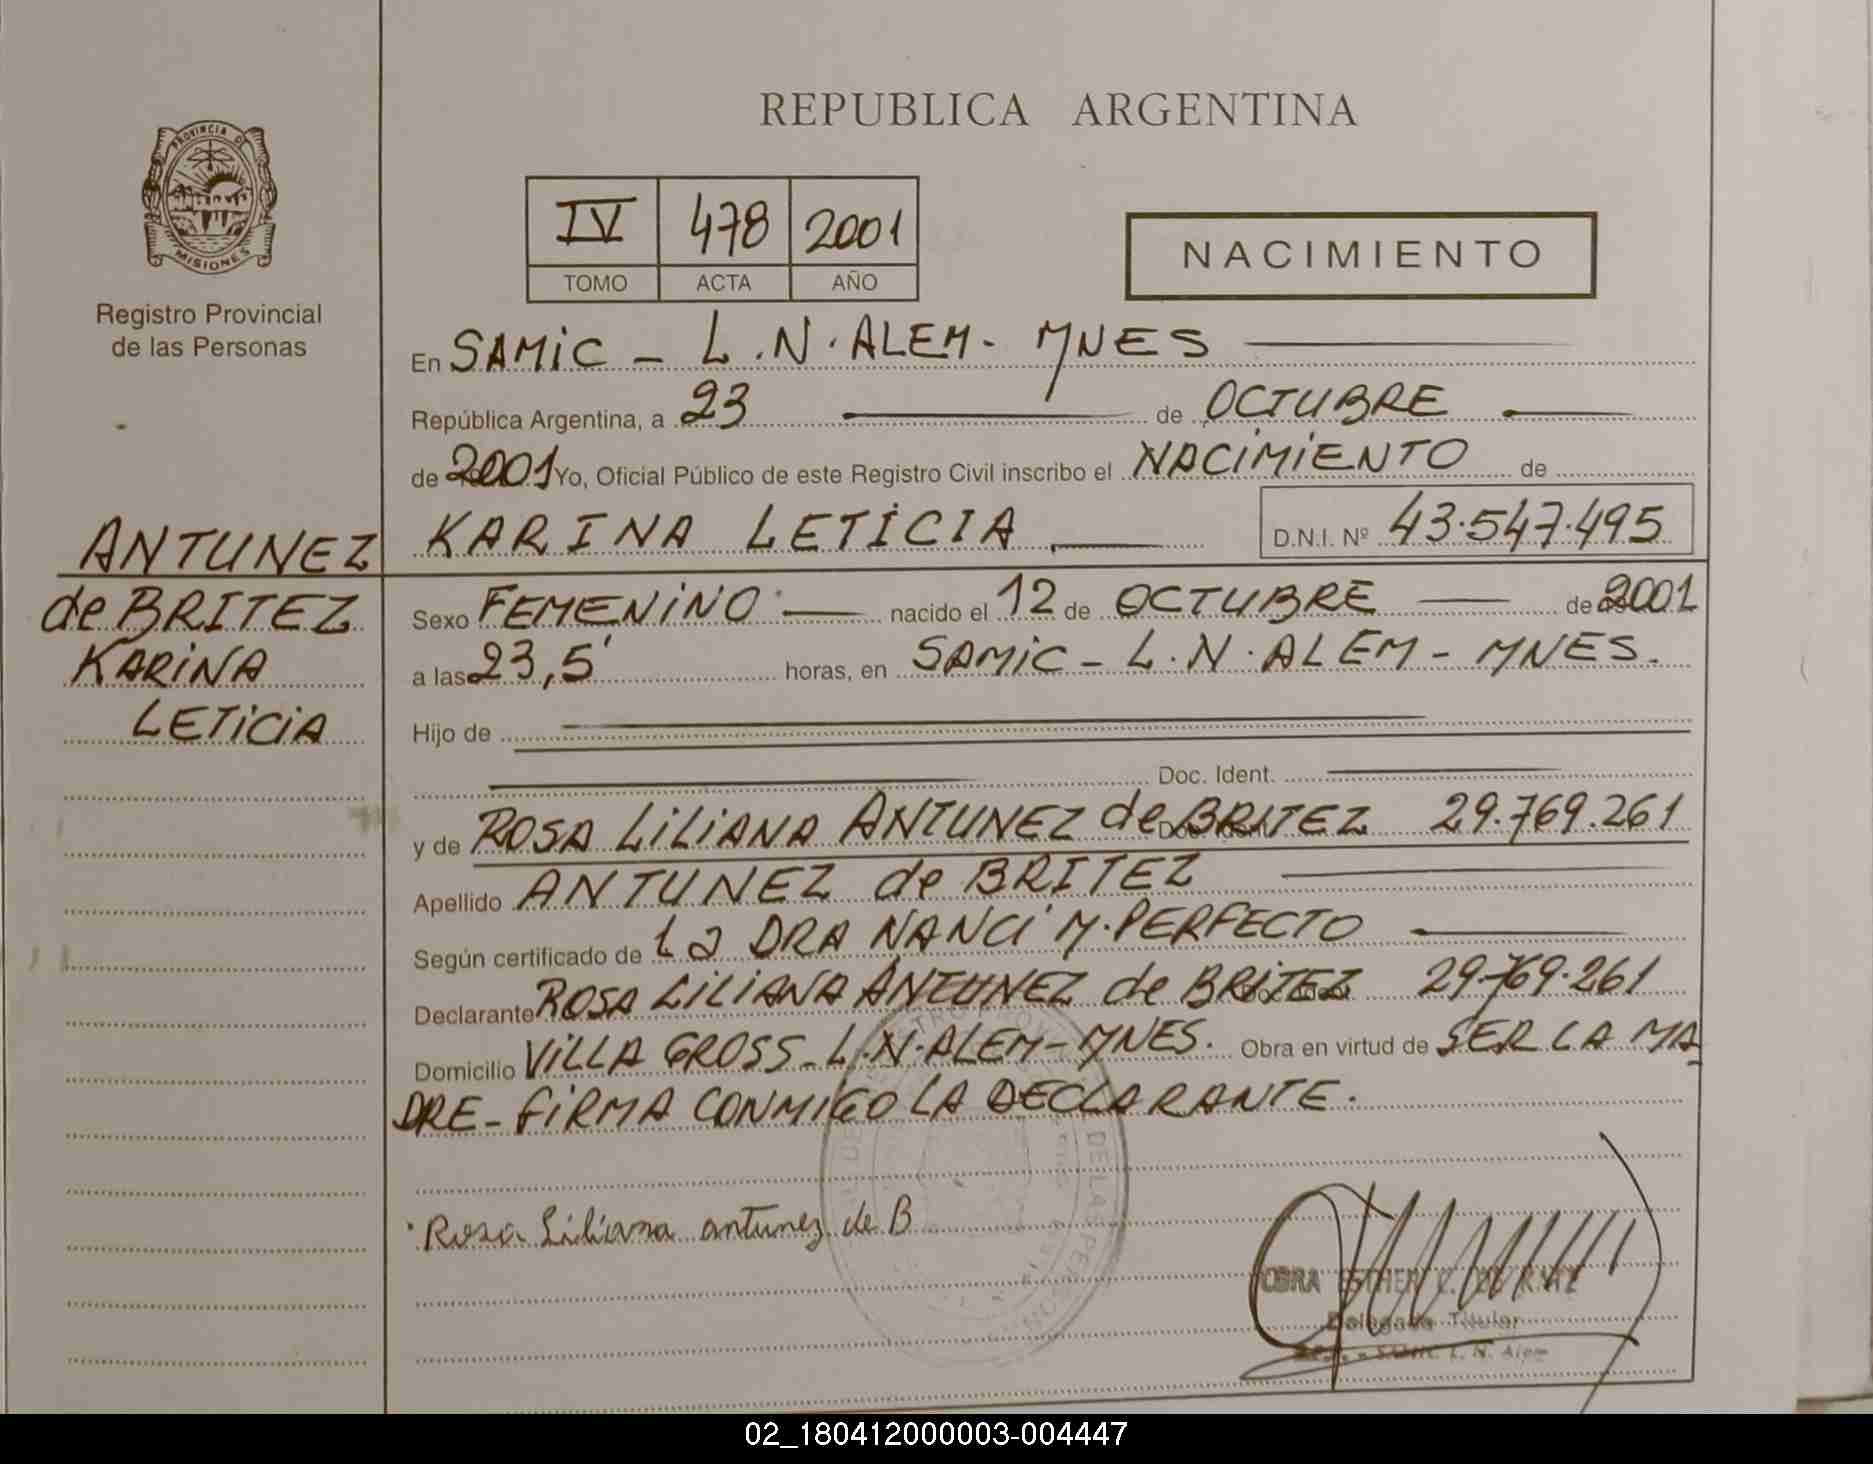 PROVINCIA D
MISIONES
Registro Provincial
de las Personas
ANTUNEZ
de BRITEZ
KARINA
LETICIA
REPUBLICA ARGENTINA
IV 478 2001
TOMO ACTA AÑO
NACIMIENTO
En SAMIC - L.N.ALEM- MNES
República Argentina, a 23 de OCTUBRE
de 2001 Yo, Oficial Público de este Registro Civil inscribo el NACIMIENTO de
KARINA LETICIA D.N.I. Nº 43.547.495
Sexo FEMENINO nacido el 12 de OCTUBRE de 2001
a las 23,5' horas, en SAMIC - L.N.ALEM - MNES.
Hijo de
Doc. Ident.
y de ROSA LILIANA ANTUNEZ de BRITEZ 29.769.261
Apellido ANTUNEZ de BRITEZ
Según certificado de La DRA NANCI M.PERFECTO
Declarante ROSA LILIANA ANTUNEZ de BRITEZ 29.769.261
Domicilio VILLA GROSS - L.N.ALEM - MNES. Obra en virtud de SER LA MA
DRE - FIRMA CONMIGO LA DECLARANTE.
Rosa Liliana antunez de B
DE LAS PERSONAS
ESTHER
Delegada Titular
L. N. Alem
02_180412000003-004447